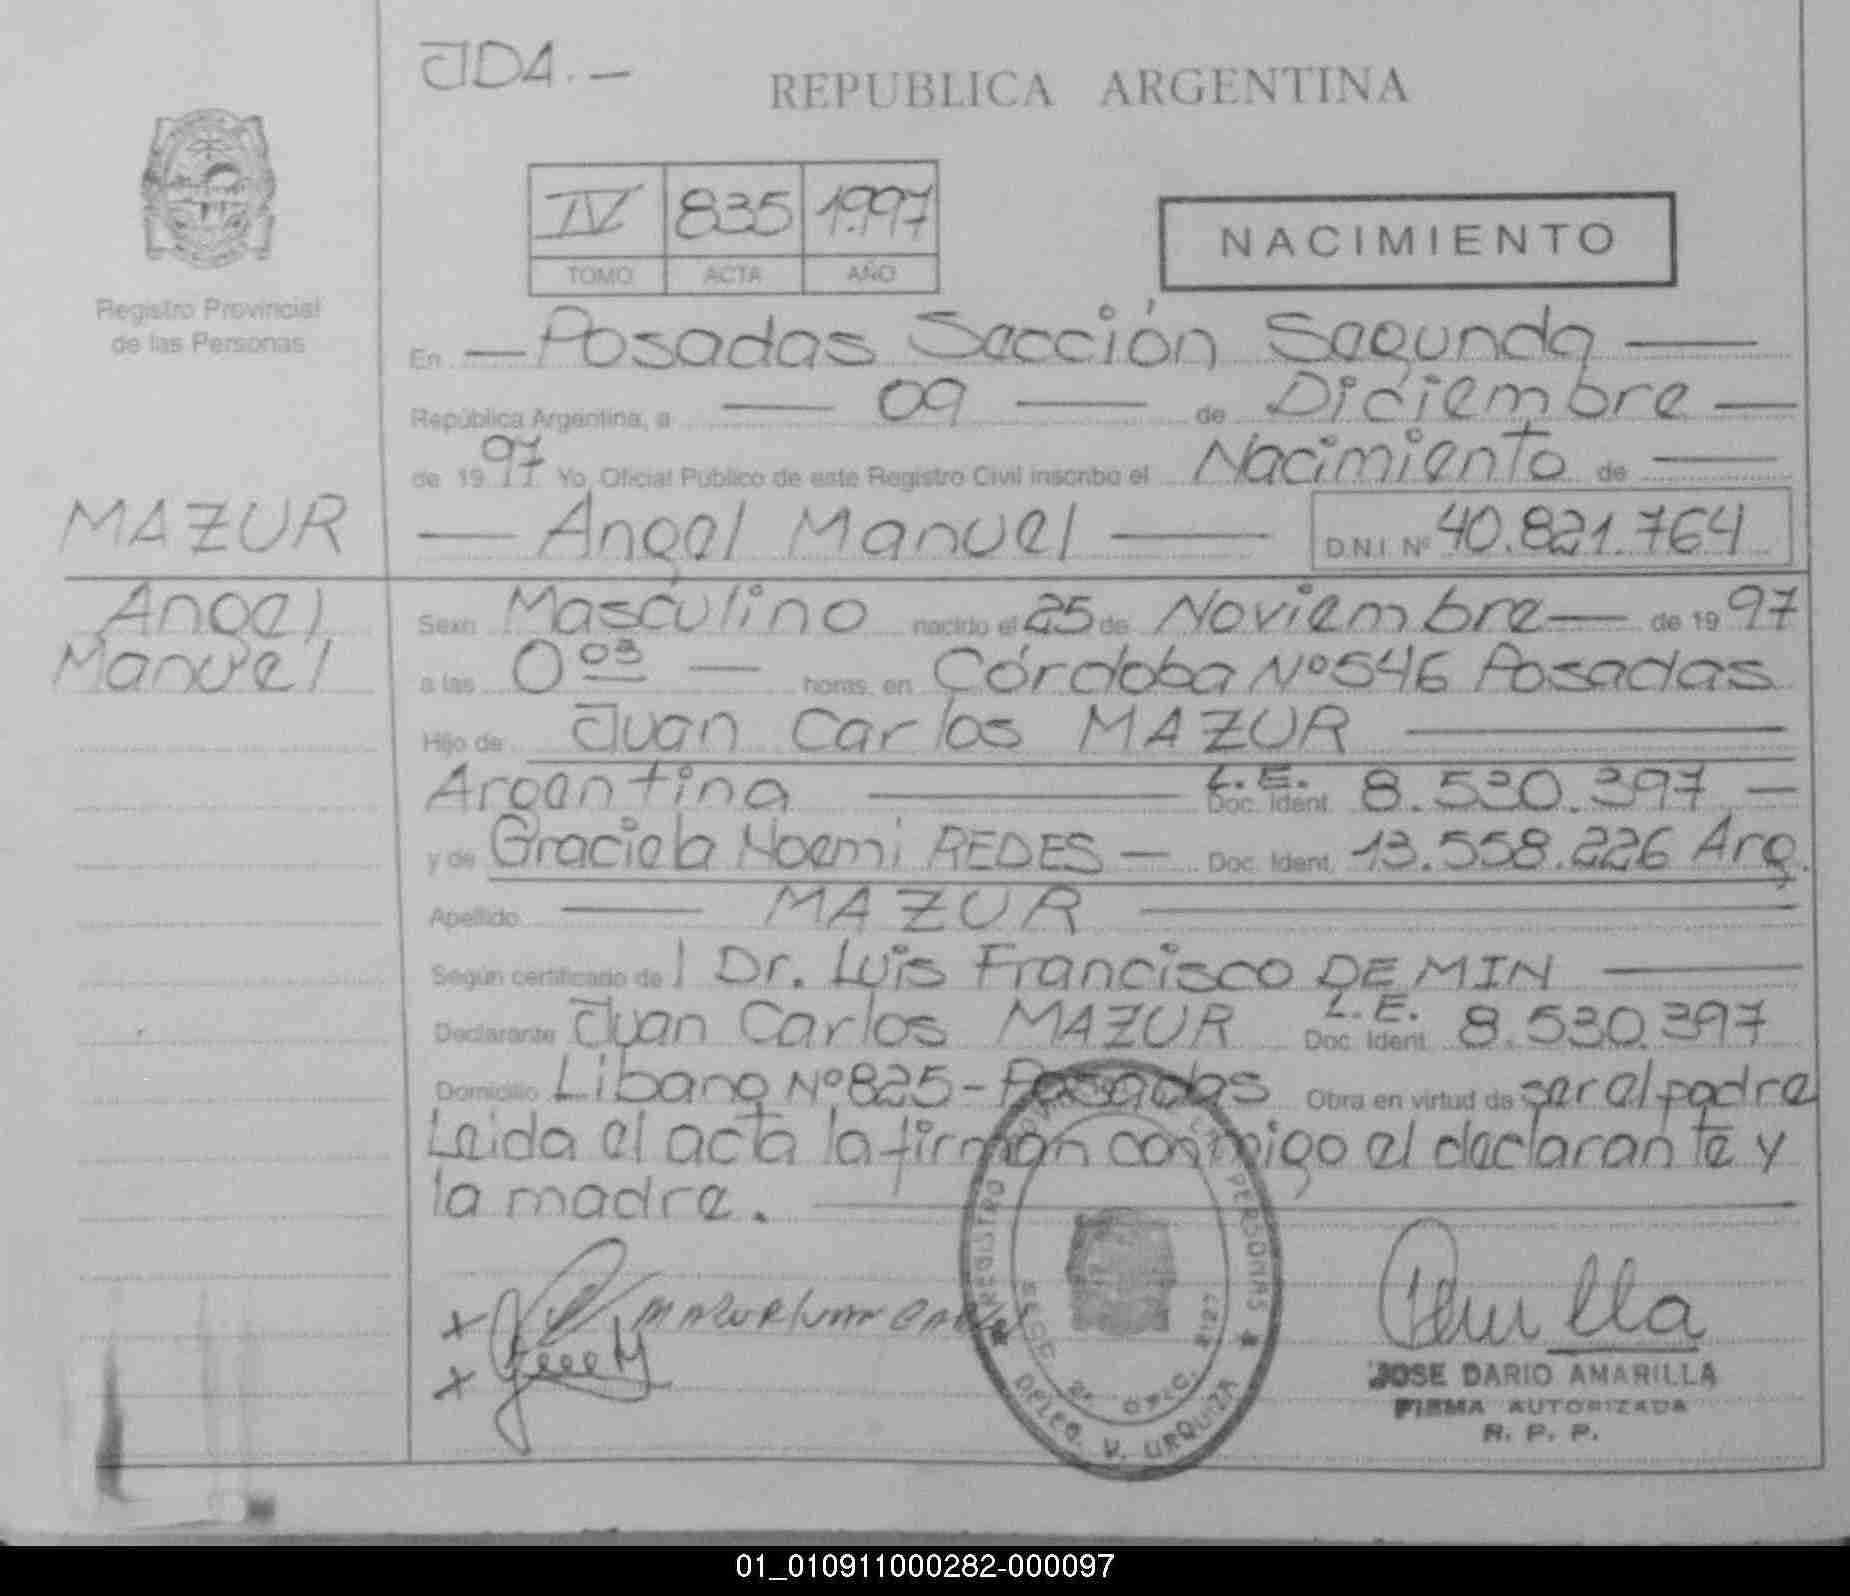 JDA.-
REPUBLICA ARGENTINA
IV 835 1.997
TOMO ACTA AÑO
NACIMIENTO
Registro Provincial
de las Personas
En Posadas Sección Segunda
República Argentina, a 09 de Diciembre
de 1997 Yo, Oficial Público de este Registro Civil inscribo el Nacimiento de
MAZUR
Angel Manuel D.N.I. Nº 40.821.764
Angel
Manuel
Sexo Masculino nacido el 25 de Noviembre de 1997
a las 0 03 horas, en Córdoba Nº 546 Posadas
Hijo de Juan Carlos MAZUR
Argentina L.E. Doc. Ident. 8.530.397
y de Graciela Noemi REDES Doc. Ident. 13.558.226 Arg.
Apellido MAZUR
Según certificado de Dr. Luis Francisco DE MIN
Declarante Juan Carlos MAZUR L.E. Doc. Ident. 8.530.397
Domicilio Libano Nº 825 - Posadas Obra en virtud de ser el padre
Leida el acta la firman conmigo el declarante y
la madre.
x MAZUR JUAN
x
REGISTRO PERSONAS
DELEG. V. URQUIZA
JOSE DARIO AMARILLA
FIRMA AUTORIZADA
R. P. P.
01_010911000282-000097